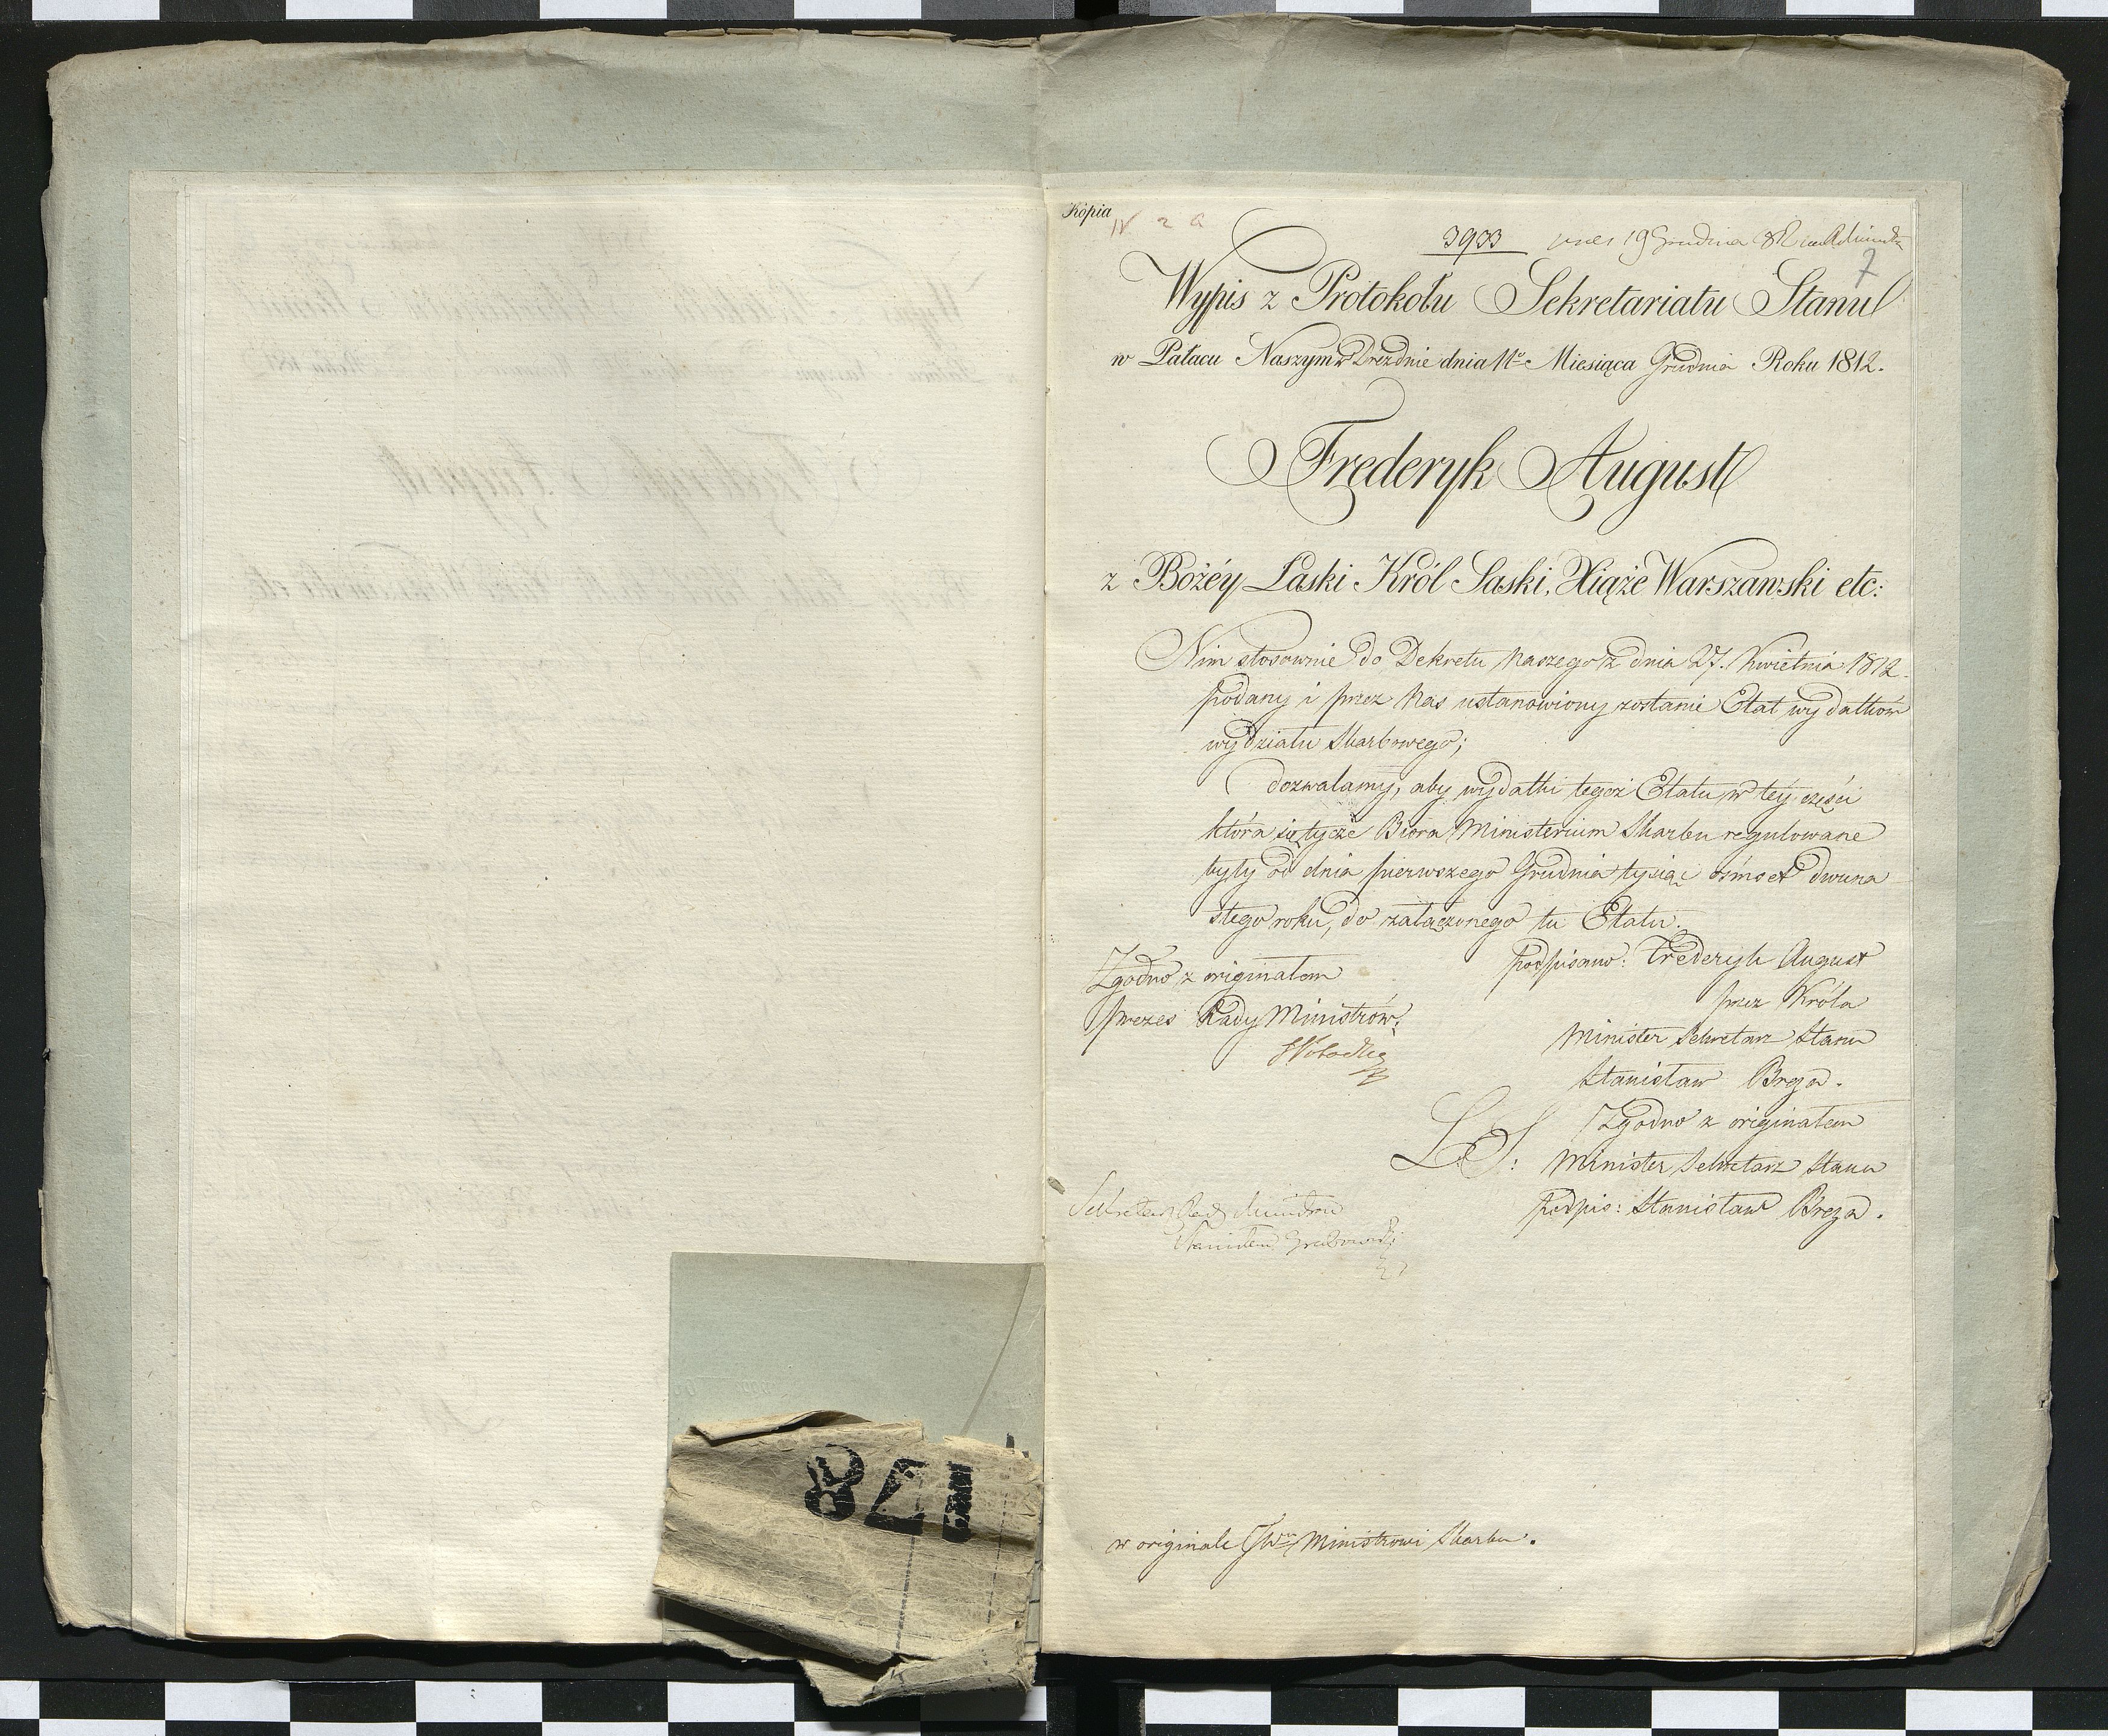 Kopia
N 2 a
3933 19 Grudnia
7
Wypis z Protokołu Sekretariatu Stanu
w Pałacu Naszym w Dreźdnie dnia 11º Miesiąca Grudnia Roku 1812.
Frederyk August
z Bożéy Łaski Król Saski, Xiąże Warszawski etc:
Nim stosownie do Dekretu Naszego z dnia 27. Kwietnia 1812.
podany i przez Nas ustanowiony zostanie Etat wydatków
wydziału Skarbowego;
dozwalamy, aby wydatki tegoż Etatu w tey części
która się tycze Biora Ministerium Skarbu regulowane
były od dnia pierwszego Grudnia tysiąc ośmset dwuna
stego roku, do załączonego tu Etatu.
podpisano: Frederyk August
przez Króla
Minister Sekretarz Stanu
Stanisław Breza.
Zgodno z originałem
Prezes Rady Ministrów.
L.S: Zgodno z originałem
Minister Sekretarz Stanu
podpis: Stanisław Breza.
Sekretarz Rady Ministrów
Stanisław Grabowski
178
w originale JW Ministrowi Skarbu.